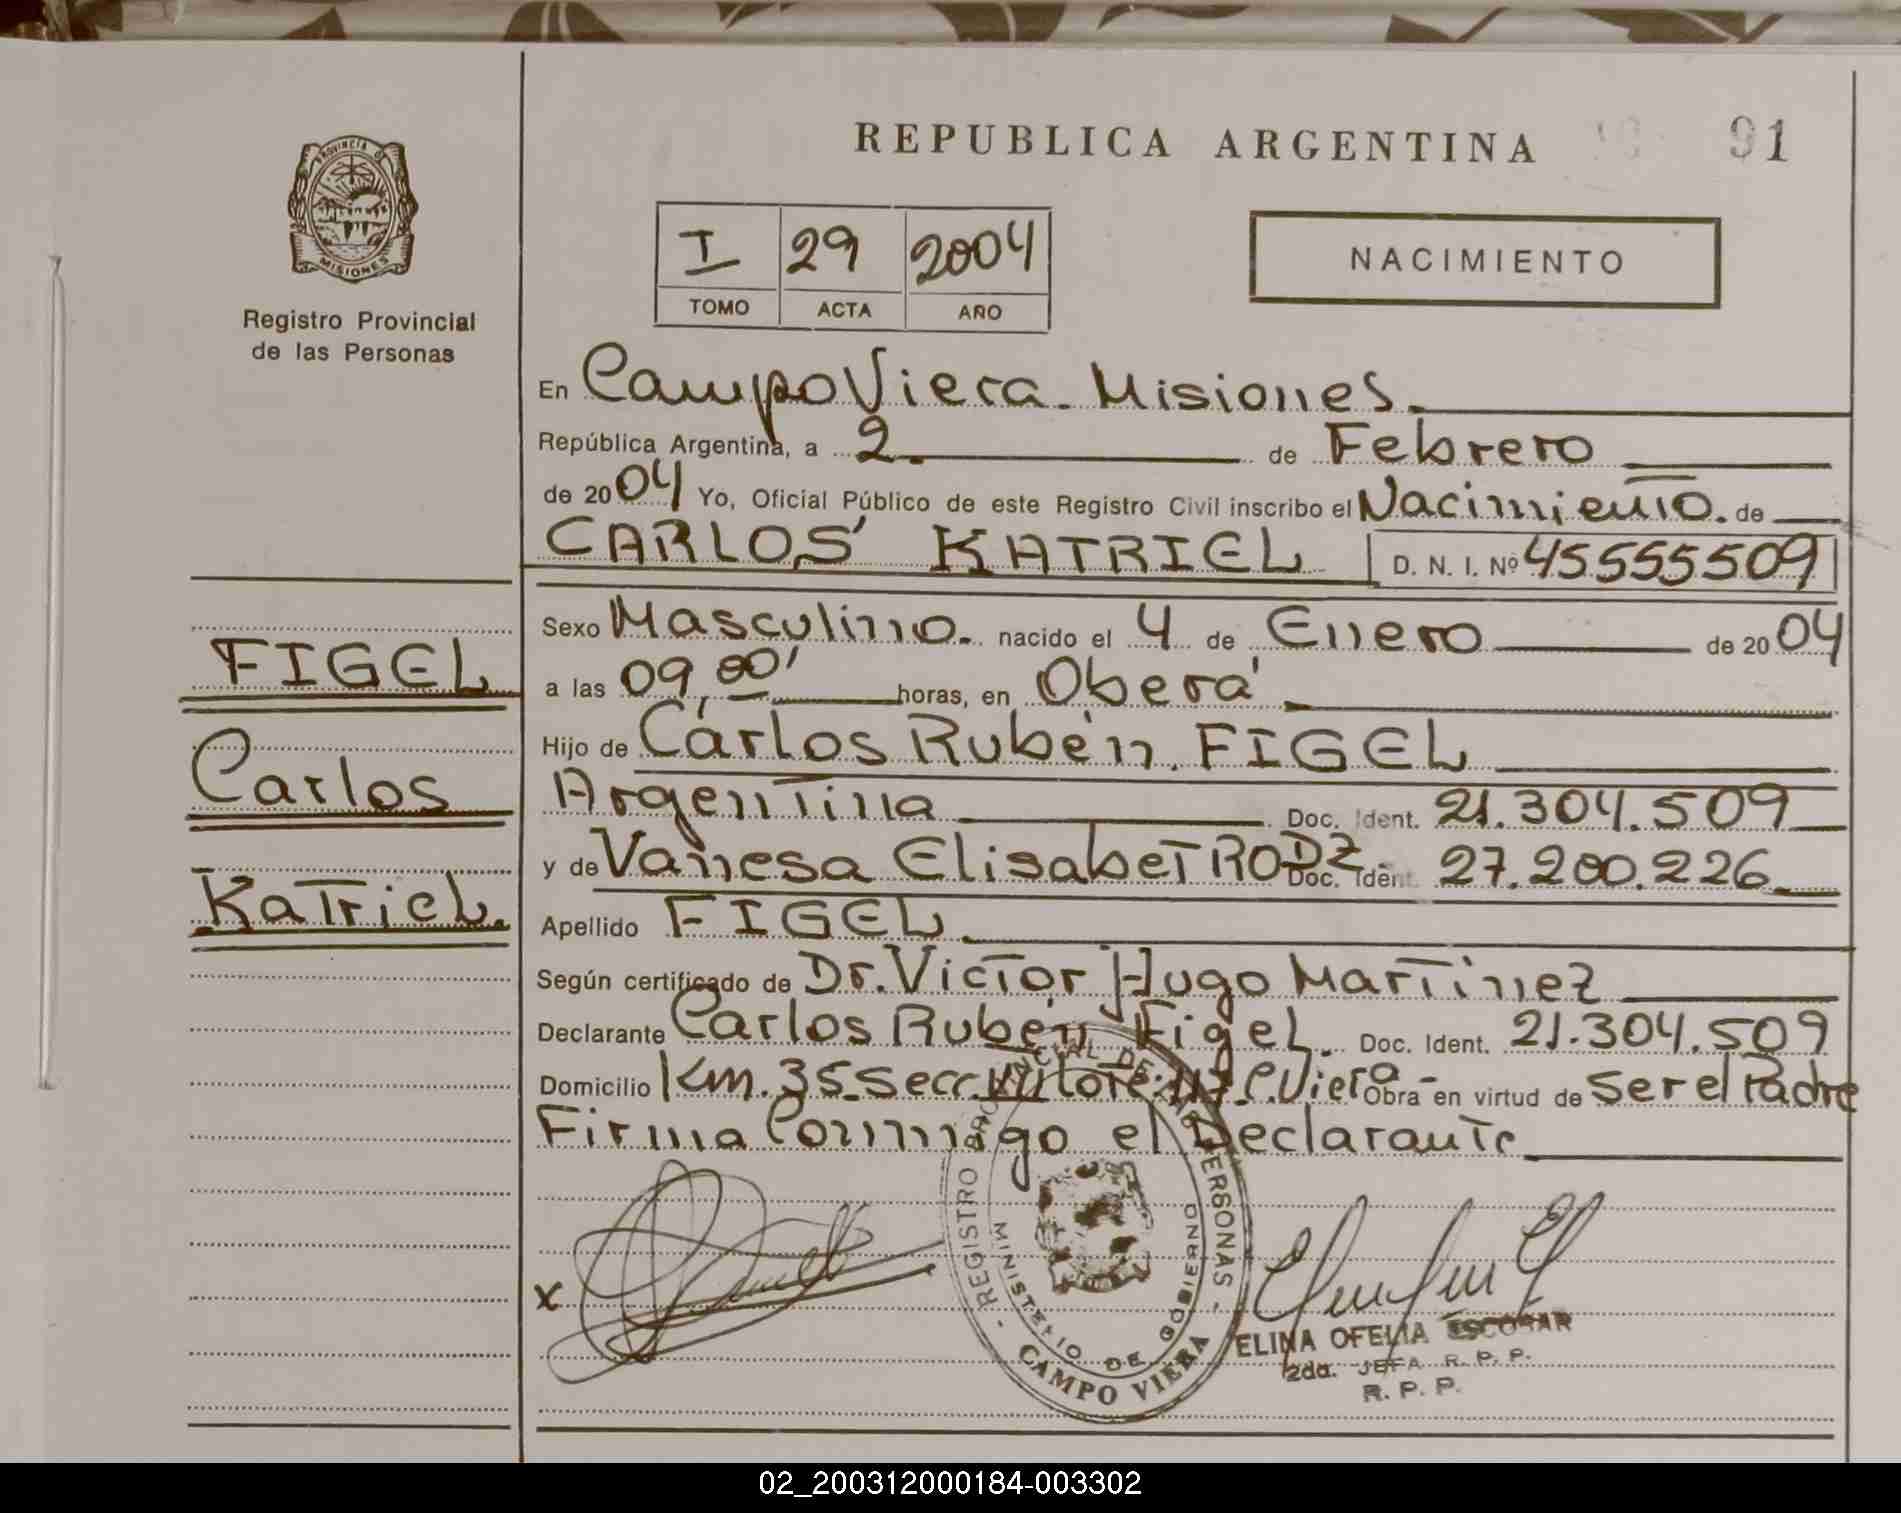 REPUBLICA ARGENTINA 91
PROVINCIA D
MISIONES
Registro Provincial
de las Personas
I 29 2004
TOMO ACTA AÑO
NACIMIENTO
En Campo Viera - Misiones.
República Argentina, a 2. de Febrero
de 2004 Yo, Oficial Público de este Registro Civil inscribo el Nacimiento. de
CARLOS KATRIEL D. N. I. Nº 45555509
Sexo Masculino. nacido el 4 de Enero de 2004
a las 09,00' horas, en Oberá
Hijo de Carlos Rubén. FIGEL
Argentina Doc. Ident. 21.304.509
y de Vanesa Elisabet RODZ. Doc. Ident. 27.200.226
Apellido FIGEL
Según certificado de Dr. Victor Hugo Martinez
Declarante Carlos Rubén Figel. Doc. Ident. 21.304.509
Domicilio Km. 35 - Secc. VII Lote. 117. C. Viera - Obra en virtud de ser el Padre
Firma Conmigo el Declarante
FIGEL
Carlos
Katriel.
x
- REGISTRO PROVINCIAL DE LAS PERSONAS -
MINISTERIO DE GOBIERNO
CAMPO VIERA
ELINA OFELIA ESCOBAR
2da. JEFA R. P. P.
R. P. P.
02_200312000184-003302